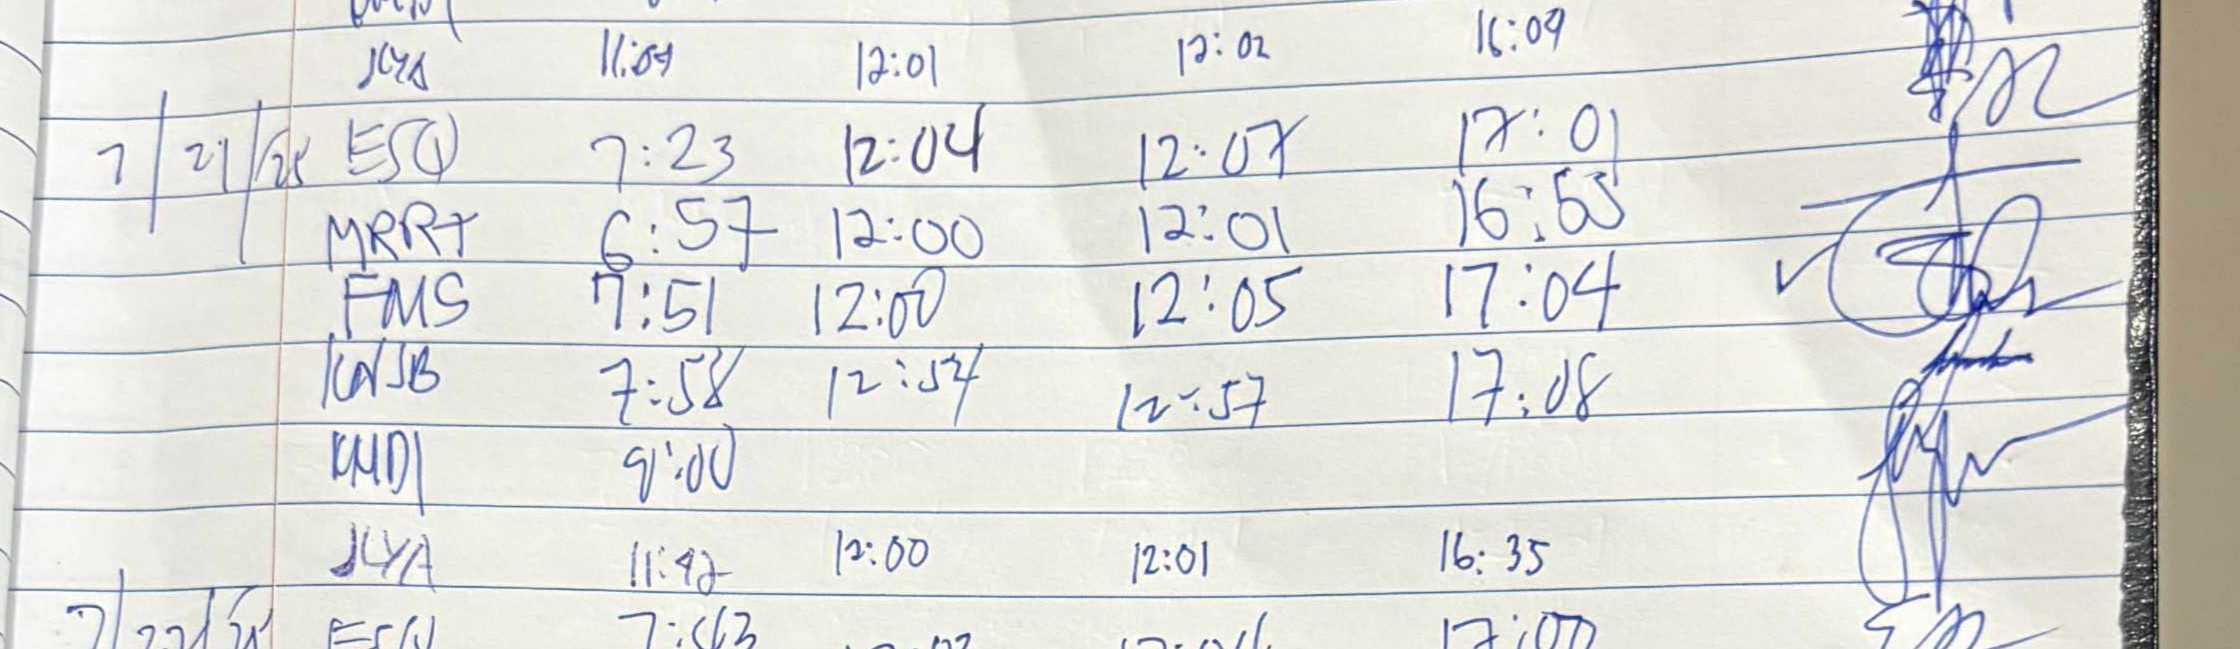 JLYA 11:09 12:01 12:02 16:09
7/21/25 ESQ 7:23 12:04 12:07 17:01
MRRT 6:57 12:00 12:01 16:55
FMS 7:51 12:00 12:05 17:04
KNJB 7:58 12:54 12:57 17:08
KMDI 9:00
JLYA 11:42 12:00 12:01 16:35
7/22/25 ESQ 17:00